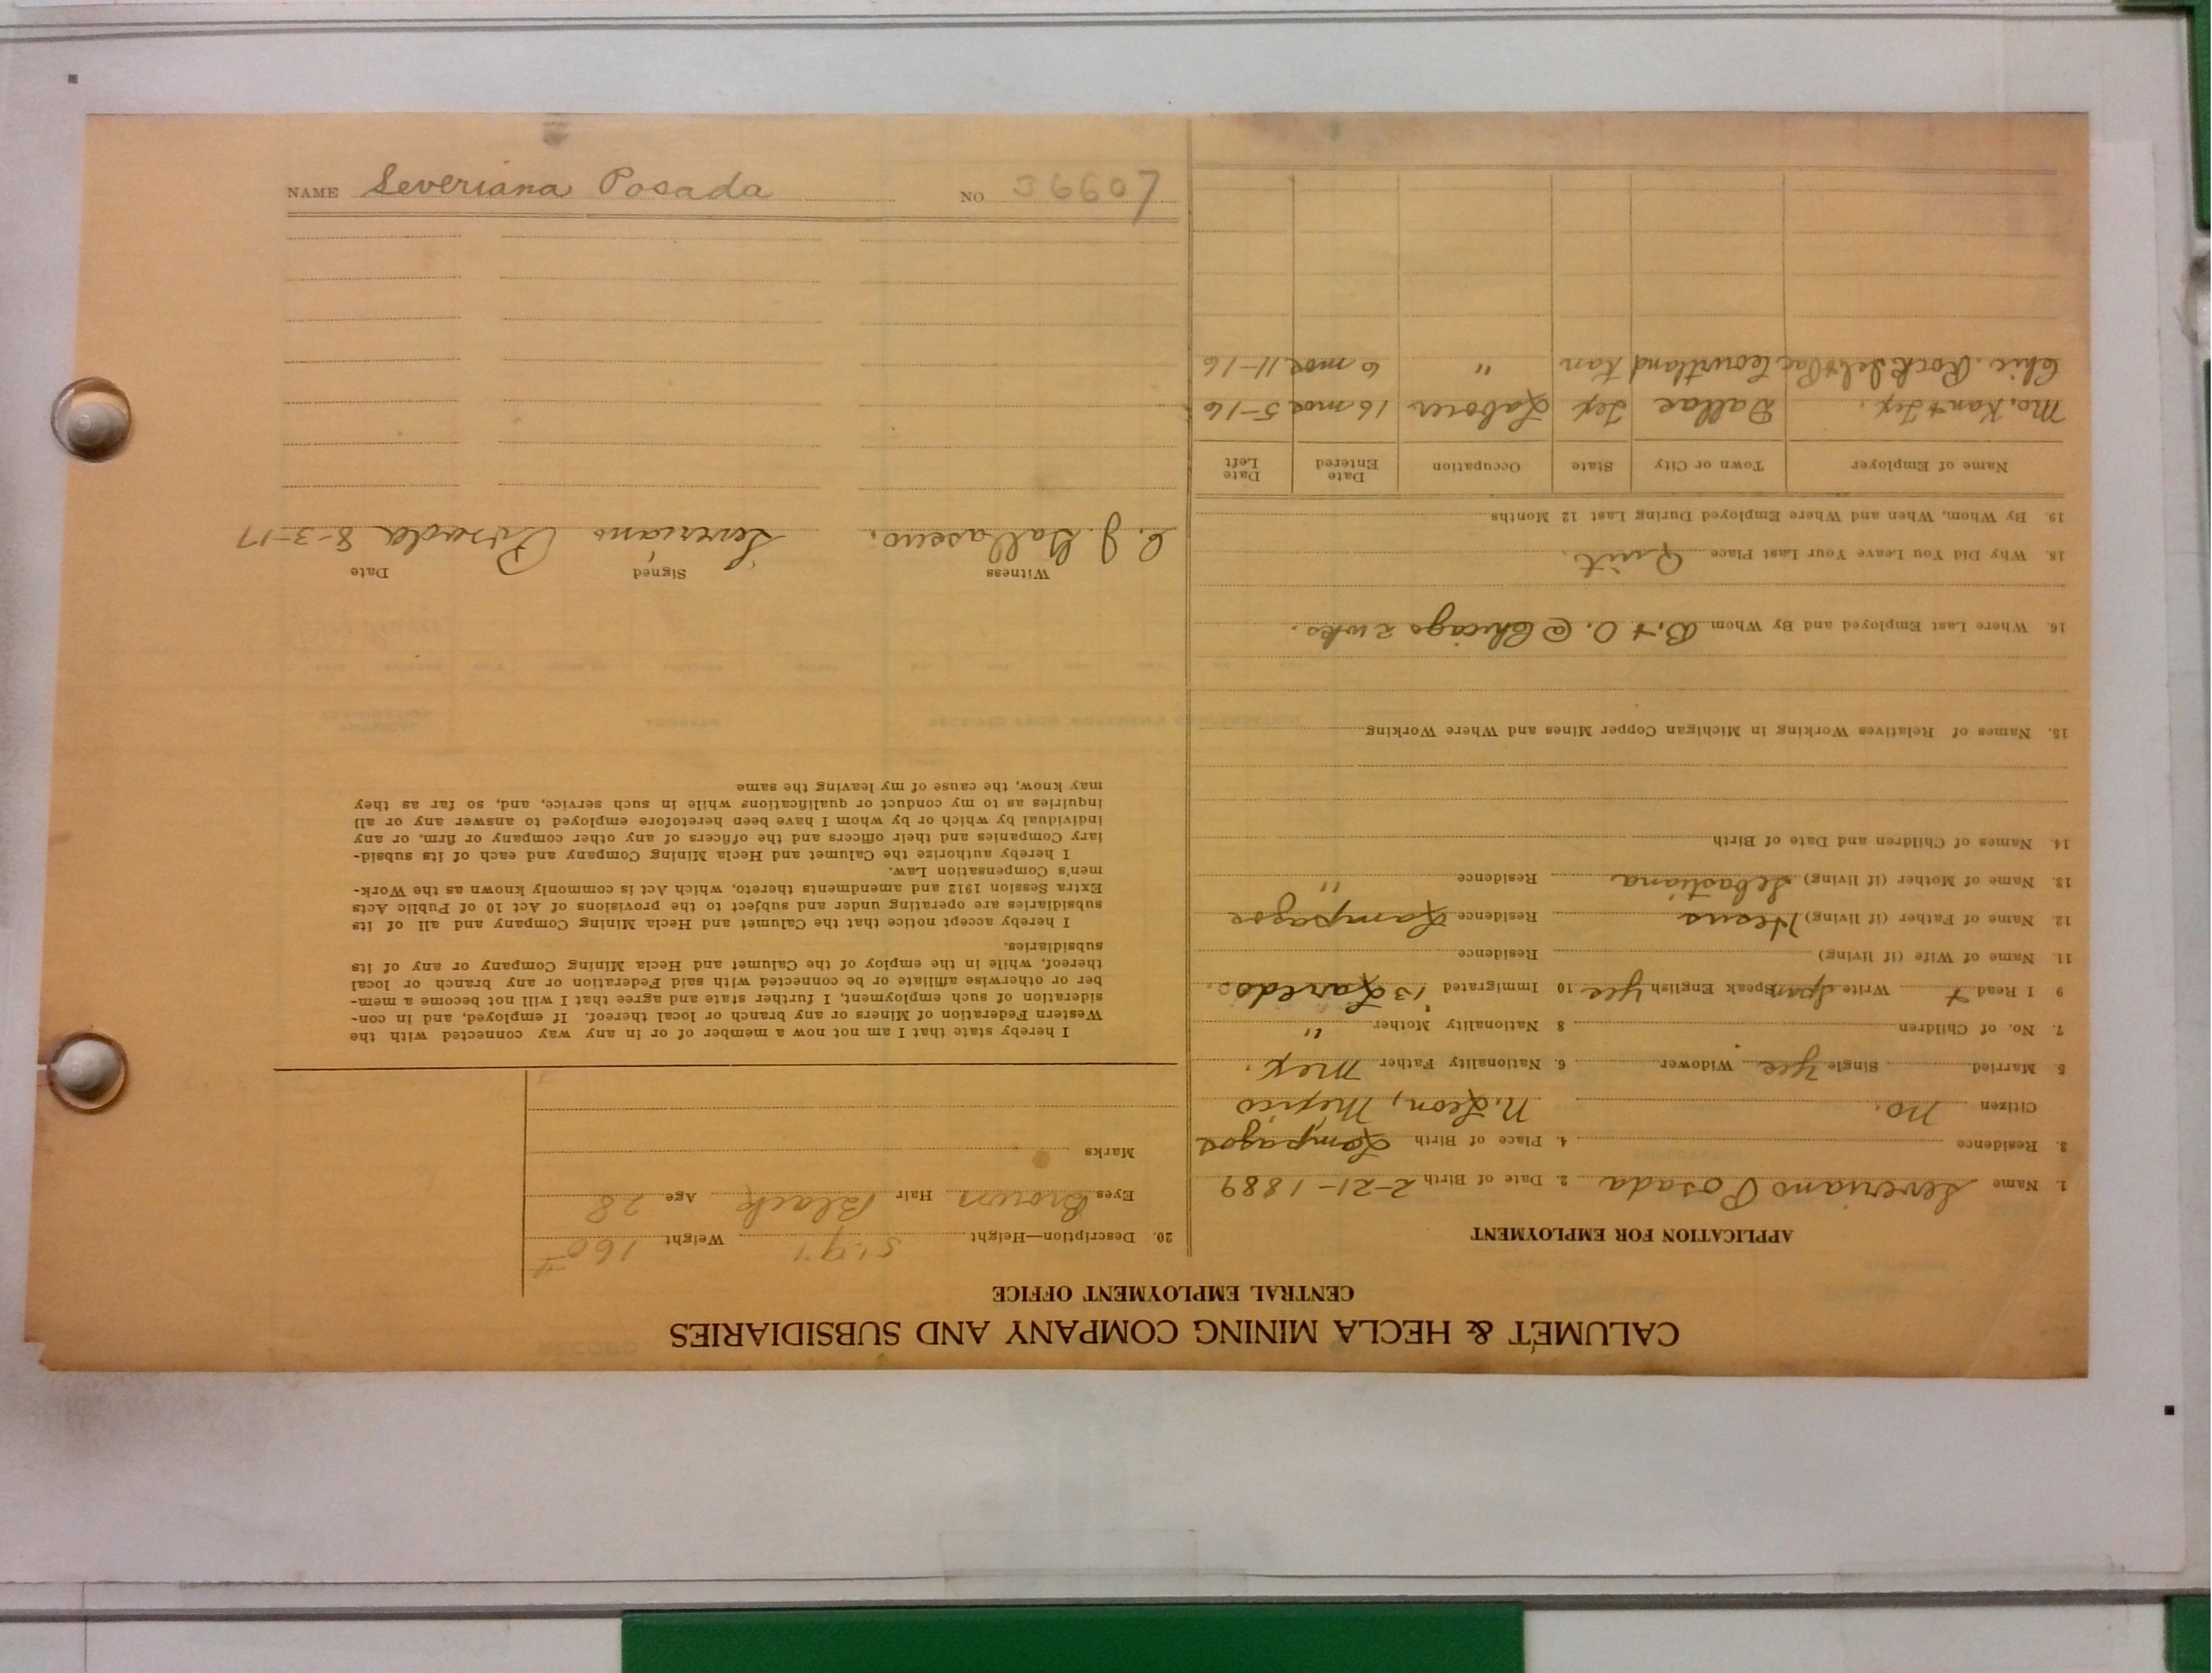 CALUMET & HECLA MINING COMPANY AND SUBSIDIARIES
CENTRAL EMPLOYMENT OFFICE
APPLICATION FOR EMPLOYMENT
1. Name Severiano Posada 2. Date of Birth 2-21-1889
3. Residence 4. Place of Birth Lampagos
Citizen no. N. Leon, Mexico
5 Married Single Yes Widower 6. Nationality Father Mex.
7. No. of Children 8 Nationality Mother "
9 I Read + Write Span Speak English Yes 10 Immigrated '13 Laredo.
11. Name of Wife (if living) Residence
12. Name of Father (if living) Residence Lampagos
13. Name of Mother (if living) Sebastiana Residence "
14. Names of Children and Date of Birth
15. Names of Relatives Working in Michigan Copper Mines and Where Working
16. Where Last Employed and By Whom B. + O. @ Chicago 2 wks.
18. Why Did You Leave Your Last Place Quit.
19. By Whom, When and Where Employed During Last 12 Months
Name of Employer Town or City State Occupation Date Entered Date Left
Mo. Kan + Tex. Dallas Tex Laborer 16 mos 5-16
Chic. Rock Isl + Pac Courtland Kan " 6 mos 11-16
20. Description—Height 5'9" Weight 160#
Eyes Brown Hair Black Age 28
Marks
I hereby state that I am not now a member of or in any way connected with the
Western Federation of Miners or any branch or local thereof. If employed, and in con-
sideration of such employment, I further state and agree that I will not become a mem-
ber or otherwise affiliate or be connected with said Federation or any branch or local
thereof, while in the employ of the Calumet and Hecla Mining Company or any of its
subsidiaries.
I hereby accept notice that the Calumet and Hecla Mining Company and all of its
subsidiaries are operating under and subject to the provisions of Act 10 of Public Acts
Extra Session 1912 and amendments thereto, which Act is commonly known as the Work-
men's Compensation Law.
I hereby authorize the Calumet and Hecla Mining Company and each of its subsid-
iary Companies and their officers and the officers of any other company or firm, or any
individual by which or by whom I have been heretofore employed to answer any or all
inquiries as to my conduct or qualifications while in such service, and, so far as they
may know, the cause of my leaving the same
Witness Signed Date
Severiano Posada 8-3-17
NAME Severiana Posada NO 36607